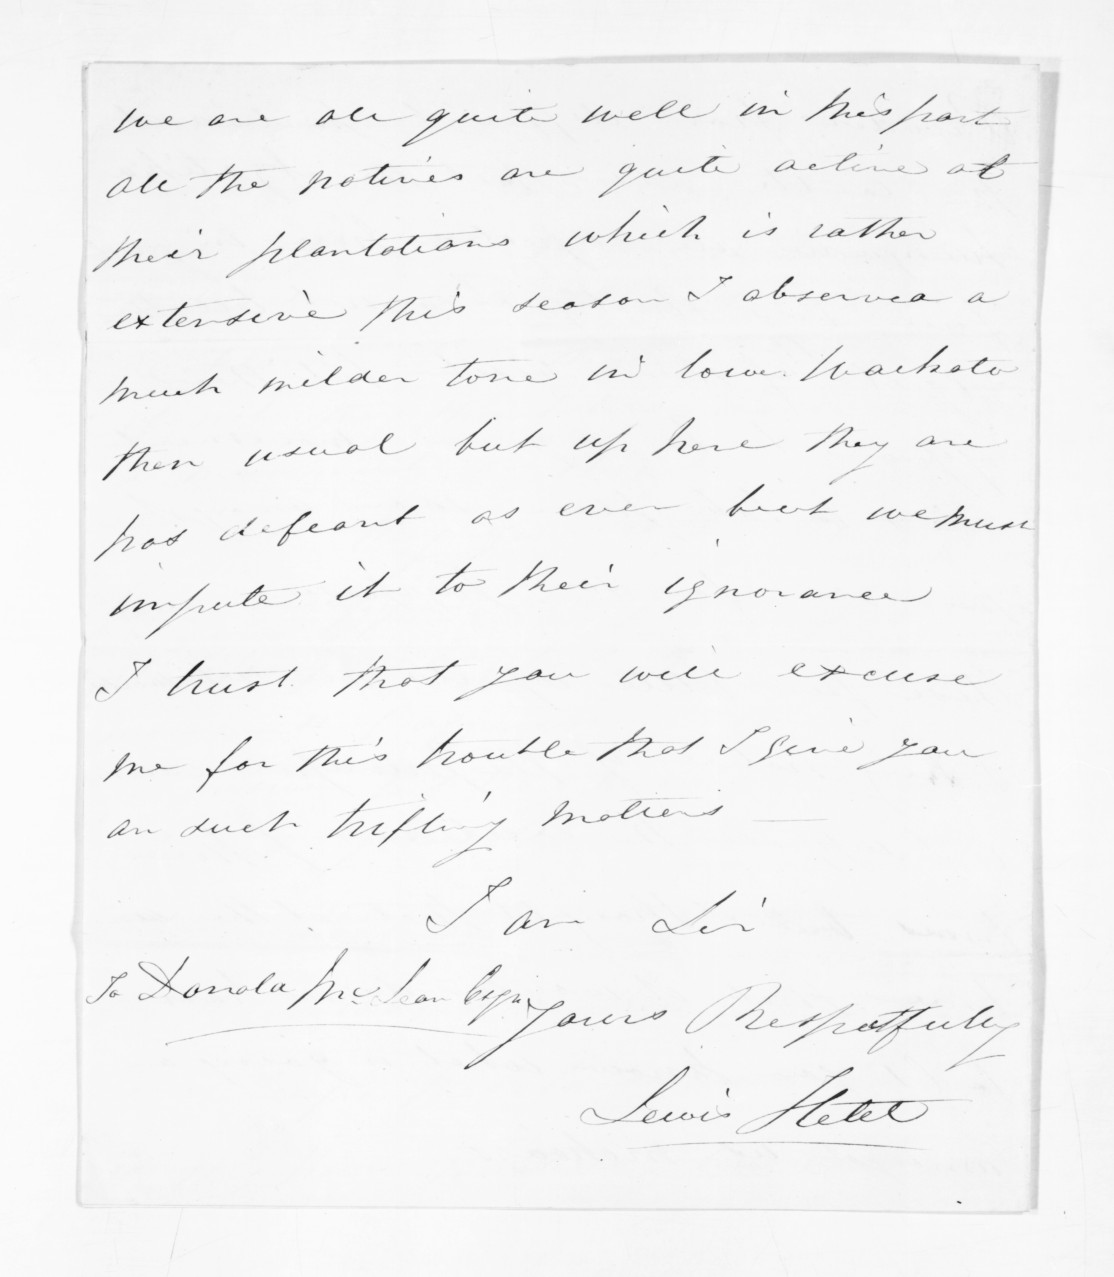 we are all quite well in this part
all the natives are quite active at
their plantations which is rather
extensive this season I observed a
much milder tone in lower Waikato
then usual but up here they are
has defeant as ever but we must
impute it to their ignorance
I trust that you will excuse
me for this trouble that I give you
on such trifling matters —
I am Sir
To Donald McLean Esqr
Yours Respectfully
Lewis Hetet